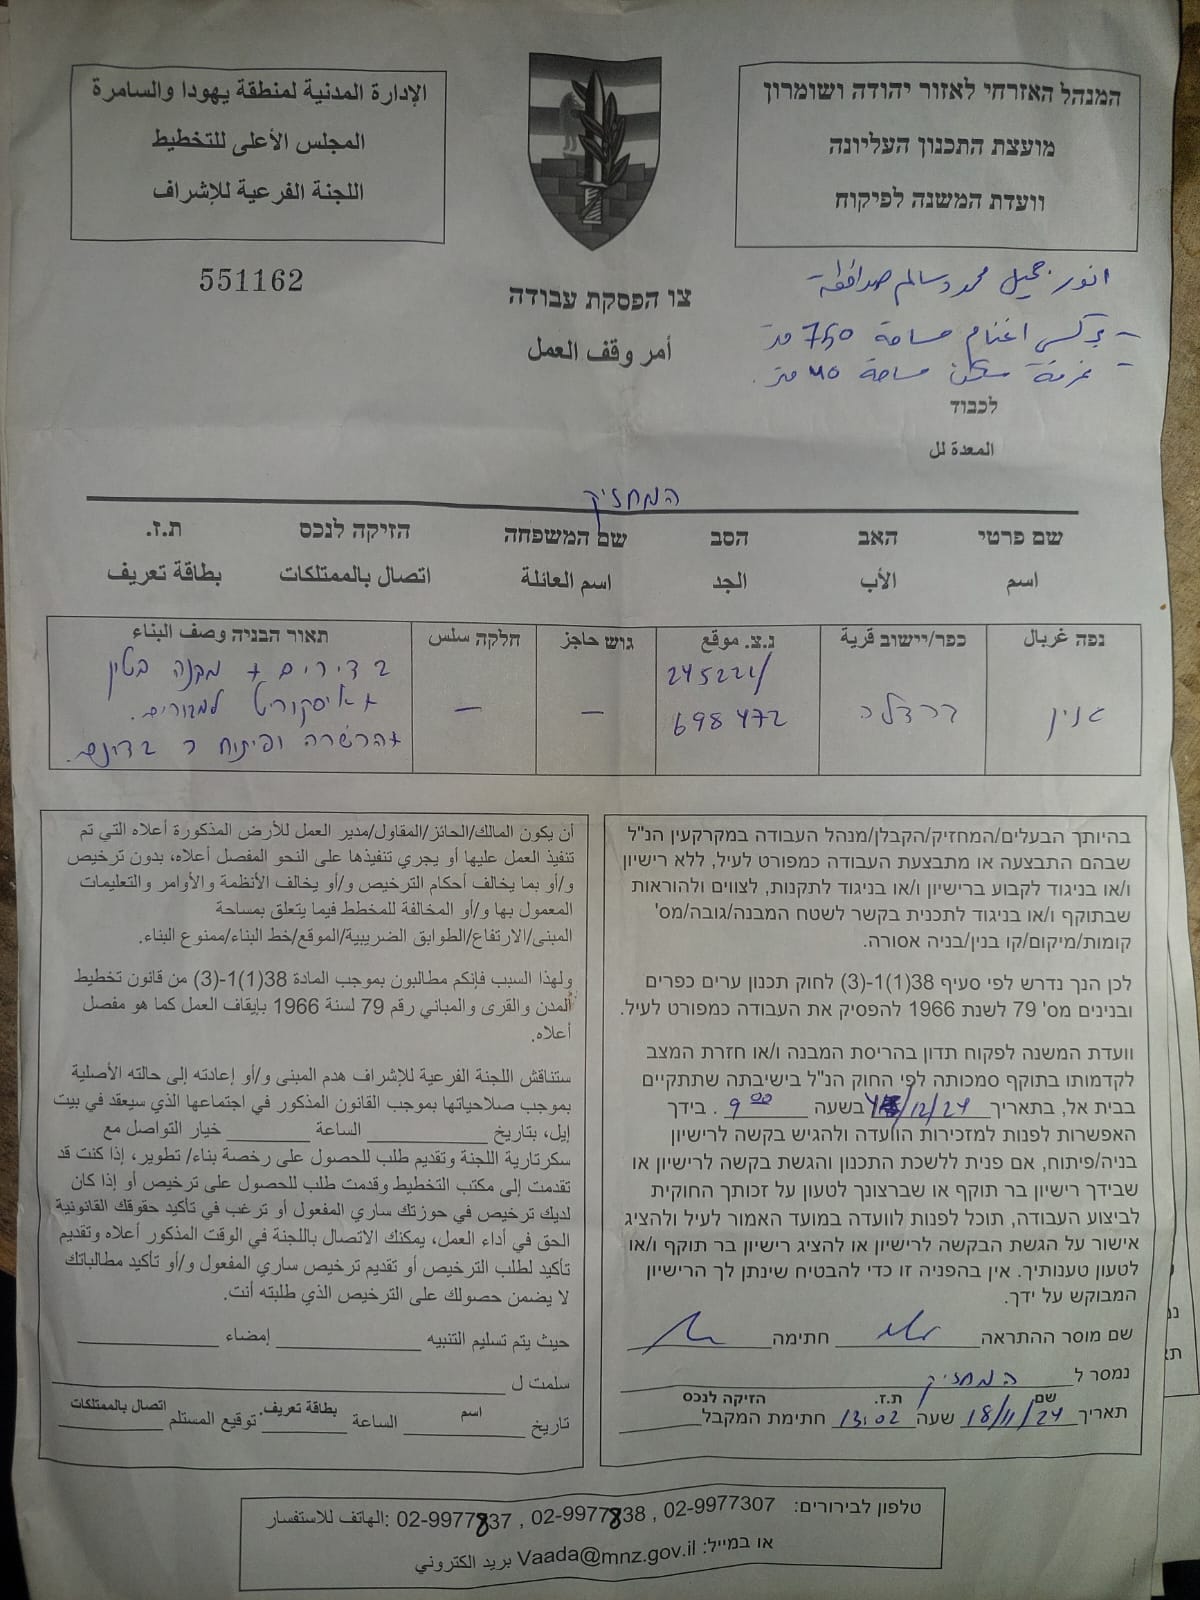 המנהל האזרחי לאזור יהודה ושומרון
מועצת התכנון העליונה
וועדת המשנה לפיקוח
الإدارة المدنية لمنطقة يهودا والسامرة
المجلس الأعلى للتخطيط
اللجنة الفرعية للإشراف
551162
צו הפסקת עבודה
أمر وقف العمل
انور جميل محمد سالم
بركس اغنام مساحة 750 متر
غرفة سكن مساحة 40 متر
לכבוד
المعدة لل
המחזיק
שם פרטי האב הסב שם המשפחה הזיקה לנכס ת.ז.
اسم الأب الجد اسم العائلة اتصال بالممتلكات بطاقة تعريف
נפה غربال כפר/יישוב قرية נ.צ. موقع גוש حاجز חלקה سلس תאור הבניה وصف البناء
ג'נין 245221/ 698472 – – 2 דירים + מבנה בטון
+ איסקורית למגורים.
+ הכשרה ופיתוח כ 2 דונם.
בהיותך הבעלים/המחזיק/הקבלן/מנהל העבודה במקרקעין הנ"ל
שבהם התבצעה או מתבצעת העבודה כמפורט לעיל, ללא רישיון
ו/או בניגוד לקבוע ברישיון ו/או בניגוד לתקנות, לצווים ולהוראות
שבתוקף ו/או בניגוד לתכנית בקשר לשטח המבנה/גובה/מס'
קומות/מיקום/קו בנין/בניה אסורה.
לכן הנך נדרש לפי סעיף 38(1)1-(3) לחוק תכנון ערים כפרים
ובנינים מס' 79 לשנת 1966 להפסיק את העבודה כמפורט לעיל.
וועדת המשנה לפקוח תדון בהריסת המבנה ו/או חזרת המצב
לקדמותו בתוקף סמכותה לפי החוק הנ"ל בישיבתה שתתקיים
בבית אל, בתאריך /12/24 בשעה 9:00. בידך
האפשרות לפנות למזכירות הוועדה ולהגיש בקשה לרישיון
בניה/פיתוח, אם פנית ללשכת התכנון והגשת בקשה לרישיון או
שבידך רישיון בר תוקף או שברצונך לטעון על זכותך החוקית
לביצוע העבודה, תוכל לפנות לוועדה במועד האמור לעיל ולהציג
אישור על הגשת הבקשה לרישיון או להציג רישיון בר תוקף ו/או
לטעון טענותיך. אין בהפניה זו כדי להבטיח שינתן לך הרישיון
המבוקש על ידך.
שם מוסר ההתראה חתימה
נמסר ל המחזיק
שם ת.ז. הזיקה לנכס
תאריך 18/11/24 שעה 13:02 חתימת המקבל
أن يكون المالك/الحائز/المقاول/مدير العمل للأرض المذكورة أعلاه التي تم
تنفيذ العمل عليها أو يجري تنفيذها على النحو المفصل أعلاه، بدون ترخيص
و/أو بما يخالف أحكام الترخيص و/أو يخالف الأنظمة والأوامر والتعليمات
المعمول بها و/أو المخالفة للمخطط فيما يتعلق بمساحة
المبنى/الارتفاع/الطوابق الضريبية/الموقع/خط البناء/ممنوع البناء.
ولهذا السبب فإنكم مطالبون بموجب المادة 38(1)1-(3) من قانون تخطيط
المدن والقرى والمباني رقم 79 لسنة 1966 بإيقاف العمل كما هو مفصل
أعلاه.
ستناقش اللجنة الفرعية للإشراف هدم المبنى و/أو إعادته إلى حالته الأصلية
بموجب صلاحياتها بموجب القانون المذكور في اجتماعها الذي سيعقد في بيت
إيل، بتاريخ الساعة خيار التواصل مع
سكرتارية اللجنة وتقديم طلب للحصول على رخصة بناء/ تطوير، إذا كنت قد
تقدمت إلى مكتب التخطيط وقدمت طلب للحصول على ترخيص أو إذا كان
لديك ترخيص في حوزتك ساري المفعول أو ترغب في تأكيد حقوقك القانونية
الحق في أداء العمل، يمكنك الاتصال باللجنة في الوقت المذكور أعلاه وتقديم
تأكيد لطلب الترخيص أو تقديم ترخيص ساري المفعول و/أو تأكيد مطالباتك
لا يضمن حصولك على الترخيص الذي طلبته أنت.
حيث يتم تسليم التنبيه إمضاء
سلمت ل
اسم بطاقة تعريف. اتصال بالممتلكات
تاريخ الساعة توقيع المستلم
טלפון לבירורים: 02-9977307 , 02-9977838 , 02-9977837 :الهاتف للاستفسار
או במייל: Vaada@mnz.gov.il بريد الكتروني